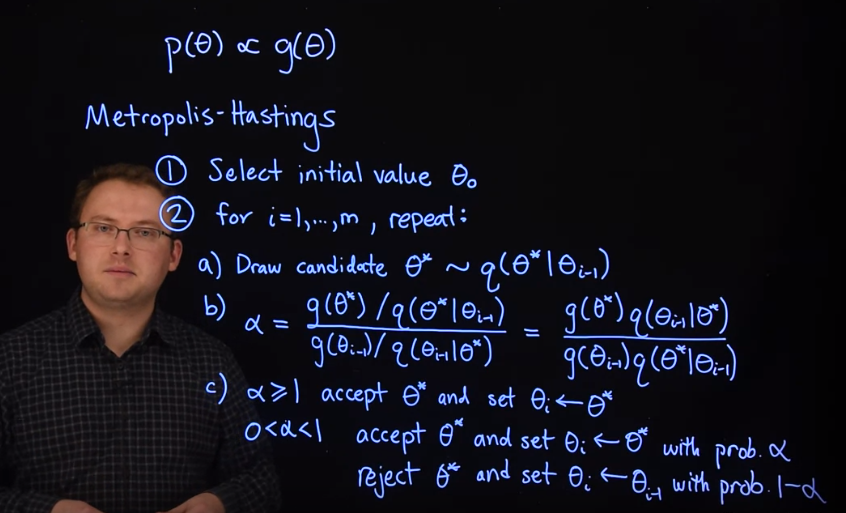 p(θ) ∝ g(θ)
Metropolis-Hastings
① Select initial value θ₀
② for i=1,...,m, repeat:
a) Draw candidate θ* ~ q(θ*|θᵢ₋₁)
b) α = g(θ*)/q(θ*|θᵢ₋₁) / g(θᵢ₋₁)/q(θᵢ₋₁|θ*) = g(θ*)q(θᵢ₋₁|θ*) / g(θᵢ₋₁)q(θ*|θᵢ₋₁)
c) α≥1 accept θ* and set θᵢ ← θ*
0<α<1 accept θ* and set θᵢ ← θ* with prob. α
reject θ* and set θᵢ ← θᵢ₋₁ with prob. 1-α